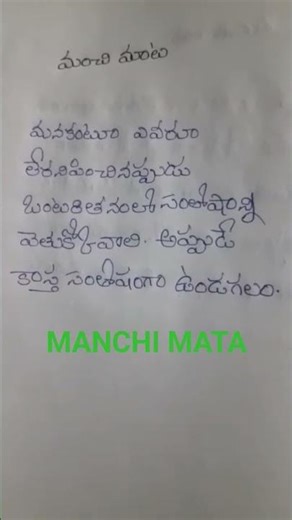 మంచి మాట
మనకంటూ ఎవరూ
లేరనిపించినప్పుడు
ఒంటరితనంలో సంతోషాన్ని
వెతుక్కోవాలి. అప్పుడే
కాస్త సంతోషంగా ఉండగలం.
MANCHI MATA